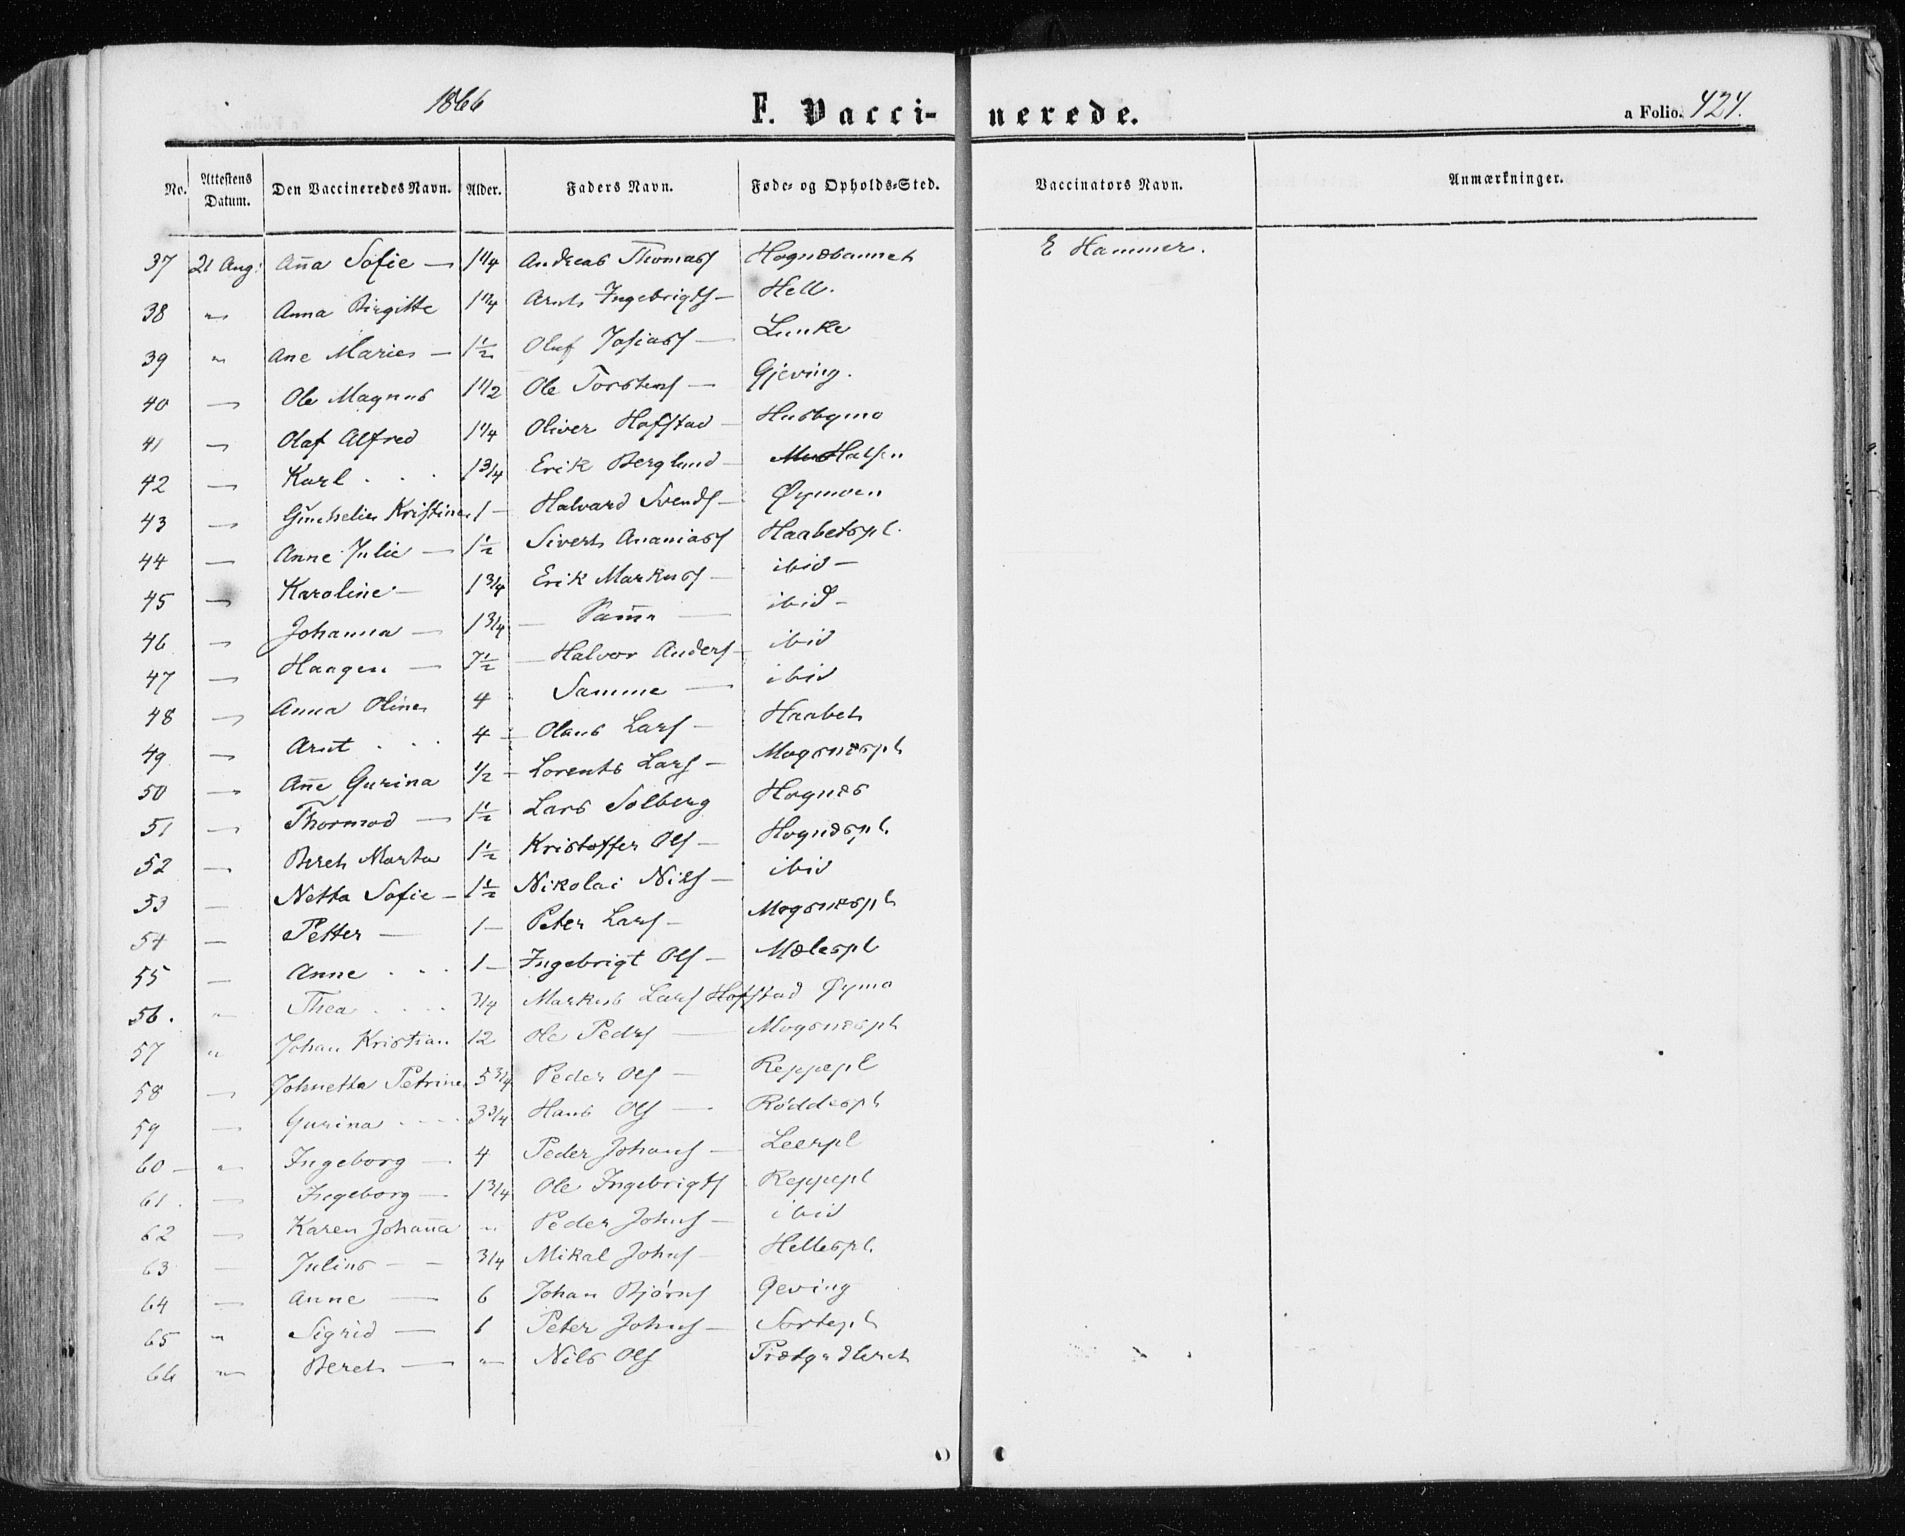 1866 F. Vaccinerede. a Folio. 424.
No. Attestens Datum. Den Vaccineredes Navn. Alder. Faders Navn. Føde- og Opholds-Sted. Vaccinators Navn. Anmærkninger.
37 21 Aug: Aña Sofie — 1 1/4 Andreas Thomass E Hammer.
38 " Anna Birgitte 1 1/4 Arnt Ingebrigts — Hell.
39 " Ane Marie — 1 1/2 Oluf Josiass — Lunke
40 — Ole Magnus 1 1/2 Ole Torstens — Gjeving.
41 — Olaf Alfred 1 1/4 Oliver Hofstad — Husbymo
42 — Karl . . 1 3/4 Erik Berglund — Halsen
43 — Kristine 1 — Halvard Svends — Øymoen
44 — Anne Julie — 1 1/2 Sivert Ananiass Haabetspl.
45 — Karoline — 1 3/4 Erik Markuss — ibid —
46 — Johanna — 1 3/4 — Sam̄e — ibid —
47 — Haagen — 7 1/2 — Halvor Anders — ibid
48 — Anna Oline 4 Samme — ibid
49 — Arnt . . . 4 — Olaus Lars — Haabet
50 — Añe Gurina 1/2 — Lorents Lars — Mogsnespl
51 — Thormod — 1 1/2 Lars Solberg Hognes
52 — Beret Marta 1 1/2 Kristoffer Ols — Hognespl.
53 — Netta Sofie — 1 1/2 Nikolai Nils — ibid
54 — Petter — 1 — Peter Lars — Mogsnespl
55 — Anne . . . 1 — Ingebrigt Ols — Mælespl
56. " Thea . . . . 3/4 Markus Lars Hofstad Øymo
57 " Johan Kristian 12 Ole Peders — Mogsnespl
58 — Johnetta Petrine 5 3/4 Peder Ols — Reppepl
59 — Gurina . . . . 3 3/4 Hans Ols — Røddespl
60 — " Ingeborg — 4 Peder Johans — Leerpl
61. — Ingeborg — 1 3/4 Ole Ingebrigts Reppepl
62 — Karen Johaña " Peder Johns — ibid
63 — Julius — — 3/4 Mikal Johns — Hellespl.
64 — Anne — 6 Johan Bjørns Geving
65 " Sigrid — 6 Peter Johns — Sortepl
66 " Beret — " — Nils Ols